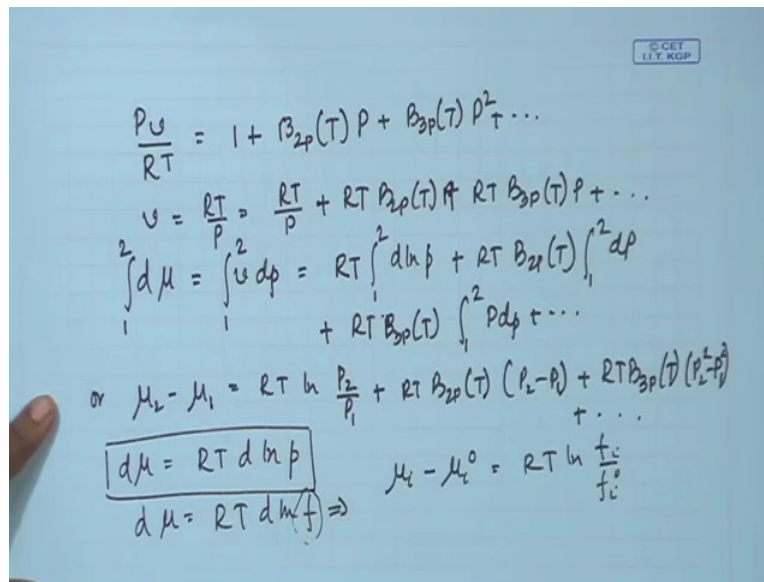 © CET
I.I.T. KGP
Pυ/RT = 1 + B₂ₚ(T) P + B₃ₚ(T) P² + ...
υ = RT/P = RT/P + RT B₂ₚ(T) + RT B₃ₚ(T) P + ...
∫₁² dμ = ∫₁² υ dp = RT ∫₁² d ln p + RT B₂ₚ(T) ∫₁² dP
+ RT B₃ₚ(T) ∫₁² P dp + ...
or μ₂ - μ₁ = RT ln P₂/P₁ + RT B₂ₚ(T) (P₂-P₁) + RT B₃ₚ(T) (P₂²-P₁²)
+ ...
dμ = RT d ln p
μᵢ - μᵢ⁰ = RT ln fᵢ/fᵢ⁰
dμ = RT d ln(f) ⇒